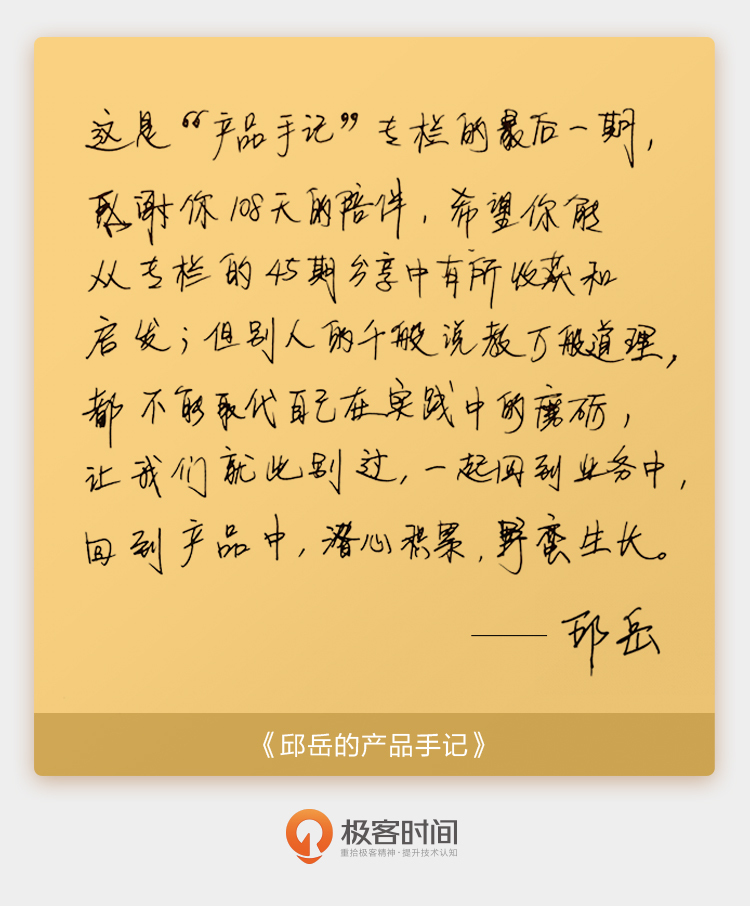 这是“产品手记”专栏的最后一期，
感谢你108天的陪伴，希望你能
从专栏的45期分享中有所收获和
启发；但别人的千般说教万般道理，
都不能取代自己在实践中的磨砺，
让我们就此别过，一起回到业务中，
回到产品中，潜心积累，野蛮生长。
——邱岳
《邱岳的产品手记》
极客时间
重拾极客精神·提升技术认知